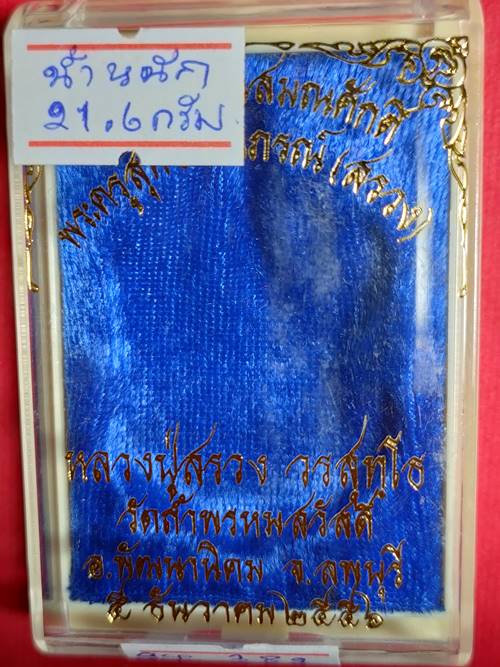 น้ำหนัก
21.6 กรัม
สมณศักดิ์
พระครู ภรณ์ (สรวง)
หลวงปู่สรวง วรสุทฺโธ
วัดถ้ำพรหมสวัสดิ์
อ.พัฒนานิคม จ.ลพบุรี
๕ ธันวาคม ๒๕๕๖